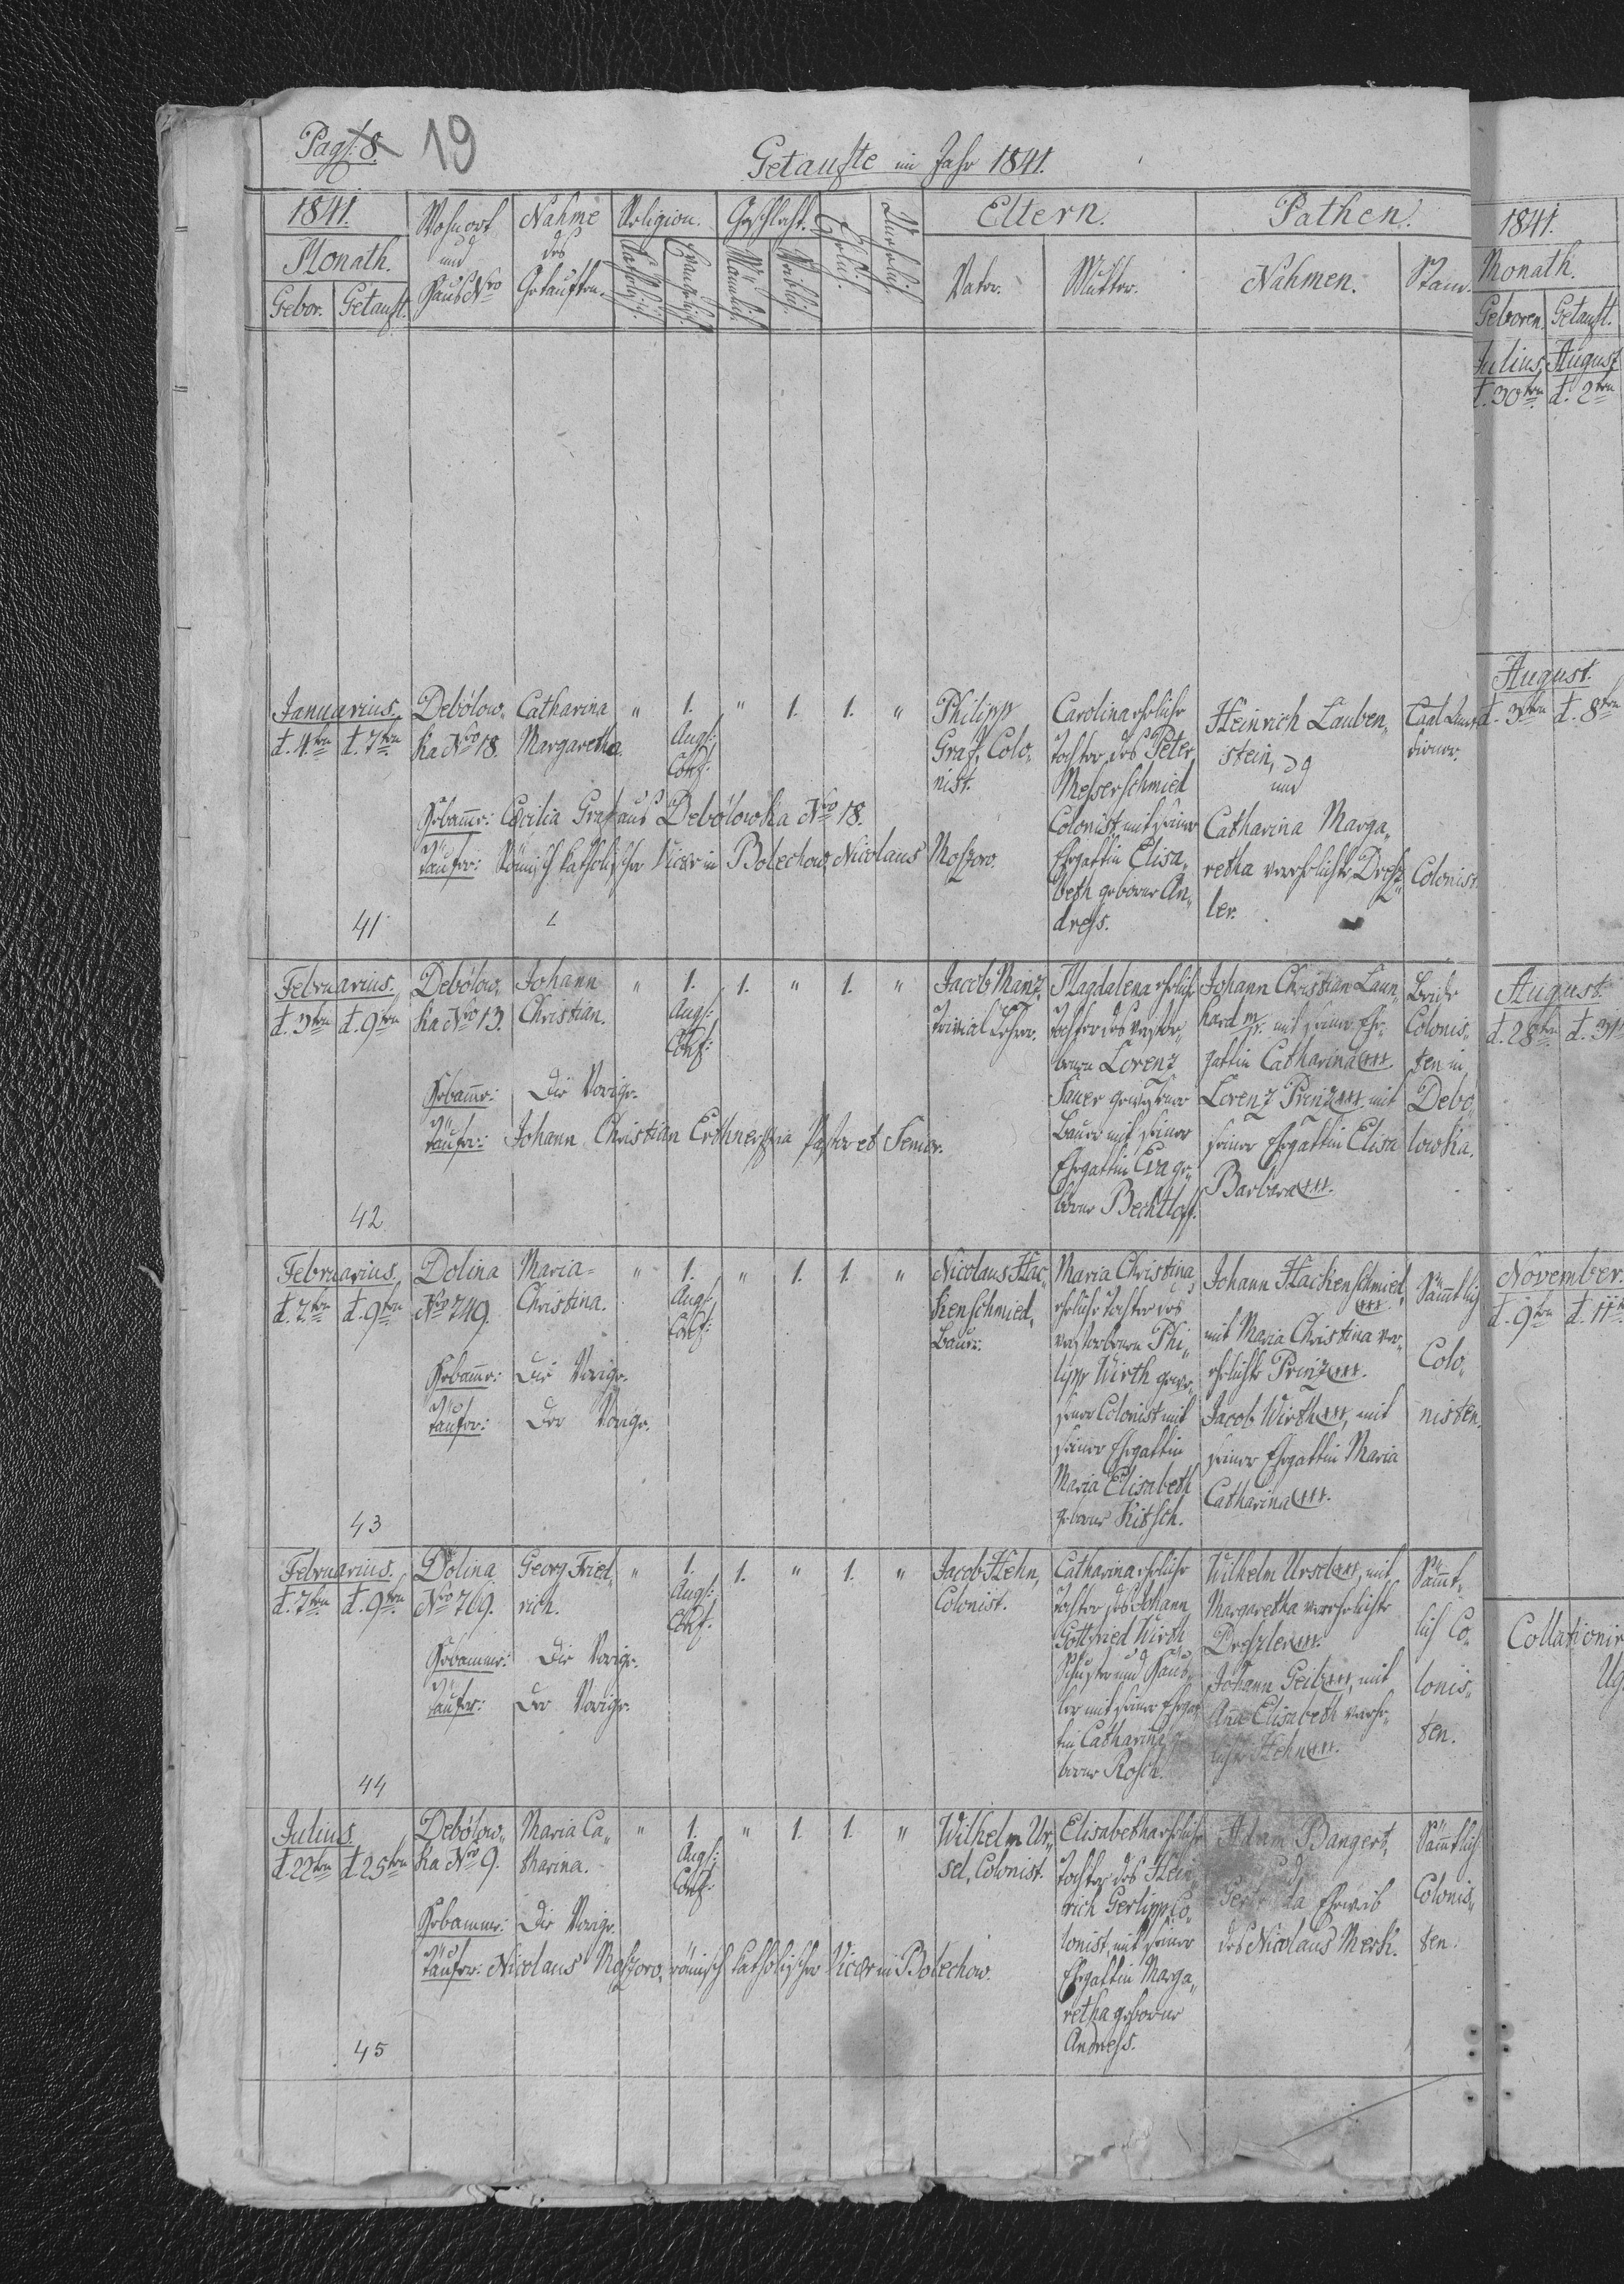 Pag: 8.
19
Getaufte im Jahr 1841.
1841.
Monath.
Gebor. Getauft.
Wohnort
und
Haus Nro
Nahme
des
Getauften.
Religion.
Katholisch.
Evangelisch.
Geschlecht.
Männlich.
Weiblich.
Ehelich.
Unehelich.
Eltern.
Vater.
Mutter.
Pathen.
Nahmen.
Stand.
Januarius.
d. 4ten d. 7ten
Debólow„
ka Nro 18.
Catharina
Margaretha.
„ 1. „ 1. 1. „
Augs:
Conf:
Philipp
Graf, Colo„
nist.
Carolina eheliche
Tochter des Peter
Messerschmied
Colonist mit seiner
Ehegattin Elisa„
beth geborne An„
dress.
Heinrich Lauben„
stein,
und
Catharina Marga„
retha verehelichte Dresz„
ler.
Colonist.
Hebamme: Cecilia Graf aus Debólowka Nro 18.
Täufer: Römisch katholischer Vicar in Bolechow, Nicolaus Moszoro.
41
Februarius.
d. 3ten d. 9ten
Debólow„
ka Nro 13.
Johann
Christian.
„ 1. 1. „ 1. „
Augs:
Conf:
Jacob Manz,
Trivial Lehrer.
Magdalena eheliche
Tochter des verstor„
benen Lorenz
Sauer gewesener
Bauer mit seiner
Ehegattin Eva ge„
borne Bechtloff.
Johann Christian Laun„
hard mit seiner Ehe„
gattin Catharina +++.
Lorenz Prinz +++. mit
seiner Ehegattin Elisa
Barbara +++.
Beide
Colonis„
ten in
Debo„
lowka.
Hebamme: Die Vorige.
Täufer: Johann Christian Pastor et Senior.
42
Februarius.
d. 7ten d. 9ten
Dolina
Nro 749.
Maria=
Christina.
„ 1. „ 1. 1. „
Augs:
Conf:
Nicolaus Hac„
kenschmied,
Bauer.
Maria Christina,
eheliche Tochter des
verstorbenen Phi„
lipp Wirth gewe„
sener Colonist mit
seiner Ehegattin
Maria Elisabeth
geborne Kitsch.
Johann Hackenschmied,
+++.
mit Maria Christina ver„
ehelichte Prinz +++.
Jacob Wirth +++, mit
seiner Ehegattin Maria
Catharina +++.
Sämtlich
Colo„
nisten.
Hebamme: Die Vorige.
Täufer: Der Vorige.
43
Februarius.
d. 7ten d. 9ten
Dolina
Nro 769.
Georg Fried„
rich.
„ 1. 1. „ 1. „
Augs:
Conf:
Jacob Hehn,
Colonist.
Catharina eheliche
Tochter des Johann
Gottfried Wirth
mit seiner Ehegat„
tin Catharina ge„
borne Rosch.
Wilhelm Ursel +++, mit
Margaretha verehelichte
Dreszler +++.
Johann Geib +++, mit
Anna Elisabeth verehe„
lichte Hehn +++.
Sämt„
lich Co„
lonis„
ten.
Hebamme: Die Vorige.
Täufer: Der Vorige.
44
Julius.
d. 22ten d. 25ten
Debólow„
ka Nro 9.
Maria Ca„
tharina.
„ 1. „ 1. 1. „
Augs:
Conf:
Wilhelm Ur„
sel, Colonist.
Elisabetha eheliche
Tochter des Hein„
rich Gerlipp, Co„
lonist, mit seiner
Ehegattin Marga„
retha geborne
Andress.
Adam Bangert,
und
Eheweib
des Nicolaus Merk.
Sämtlich
Colonis„
ten.
Hebamme: Die Vorige.
Täufer: Nicolaus Moszoro, römisch katholischer Vicar in Bolechow.
45
1841.
Monath.
Geboren. Getauft.
Julius. August
d. 30ten d. 2ten
August.
d. 3ten d. 8ten
August.
d. 28ten d. 31
November.
d. 9ten d. 11
Collationir